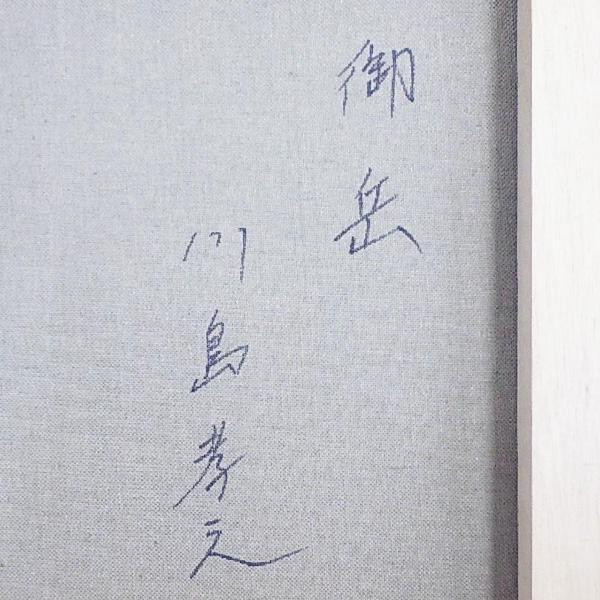 御岳
川島孝之